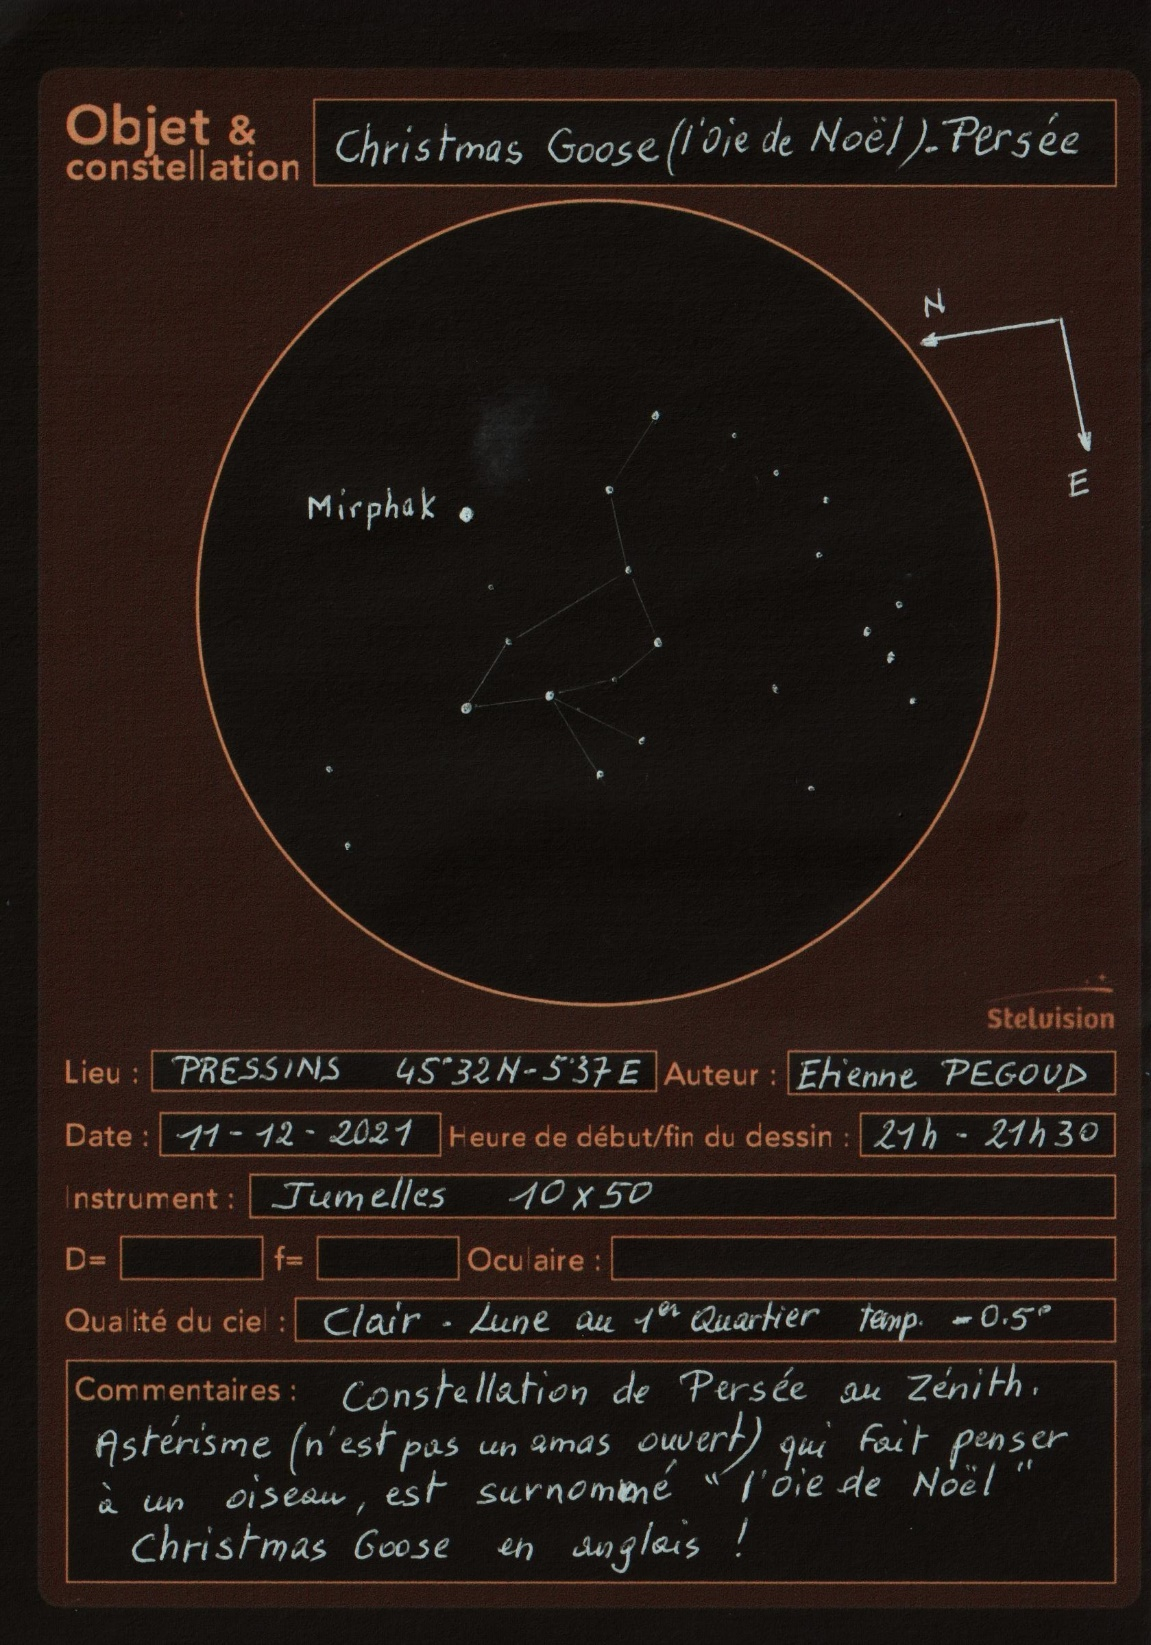 Objet &
constellation
Christmas Goose (l'Oie de Noël). Persée
N
E
Mirphak
Stelvision
Lieu : PRESSINS 45°32N-5°37E Auteur : Etienne PEGOUD
Date : 11-12-2021 Heure de début/fin du dessin : 21h - 21h30
Instrument : Jumelles 10x50
D= f= Oculaire :
Qualité du ciel : Clair - Lune au 1er Quartier temp. -0.5°
Commentaires : Constellation de Persée au Zénith.
Astérisme (n'est pas un amas ouvert) qui fait penser
à un oiseau, est surnommé "l'Oie de Noël"
Christmas Goose en anglais !